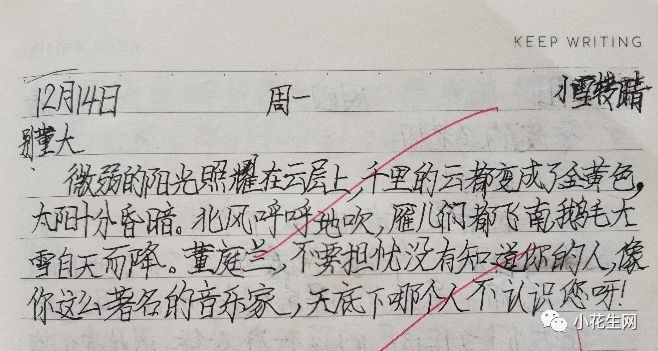 KEEP WRITING
12月14日 周一 小雪转晴
别董大
微弱的阳光照耀在云层上,千里的云都变成了金黄色,
太阳十分昏暗。北风呼呼地吹,雁儿们都飞南,鹅毛大
雪自天而降。董庭兰,不要担忧没有知道你的人,像
你这么著名的音乐家,天底下哪个人不认识您呀!
小花生网